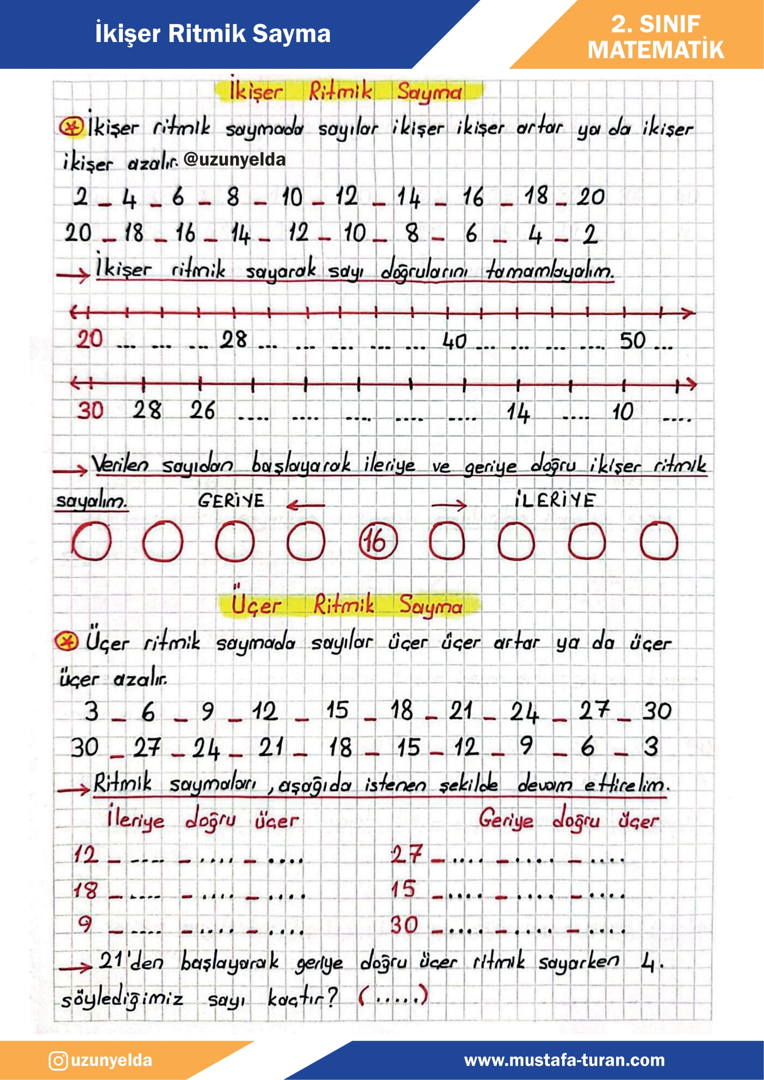 İkişer Ritmik Sayma
2. SINIF
MATEMATİK
İkişer Ritmik Sayma
İkişer ritmik saymada sayılar ikişer ikişer artar ya da ikişer
ikişer azalır. @uzunyelda
2 _ 4 _ 6 _ 8 _ 10 _ 12 _ 14 _ 16 _ 18 _ 20
20 _ 18 _ 16 _ 14 _ 12 _ 10 _ 8 _ 6 _ 4 _ 2
→ İkişer ritmik sayarak sayı doğrularını tamamlayalım.
20 ... ... ... 28 ... ... ... ... ... 40 ... ... ... .... 50 ...
30 28 26 .... .... .... .... .... 14 .... 10 ....
→ Verilen sayıdan başlayarak ileriye ve geriye doğru ikişer ritmik
sayalım. GERİYE ← → İLERİYE
16
Üçer Ritmik Sayma
Üçer ritmik saymada sayılar üçer üçer artar ya da üçer
üçer azalır.
3 _ 6 _ 9 _ 12 _ 15 _ 18 _ 21 _ 24 _ 27 _ 30
30 _ 27 _ 24 _ 21 _ 18 _ 15 _ 12 _ 9 _ 6 _ 3
→ Ritmik saymaları, aşağıda istenen şekilde devam ettirelim.
İleriye doğru üçer Geriye doğru üçer
12 _ .... _ .... _ .... 27 _ .... _ .... _ ....
18 _ .... _ .... _ .... 15 _ .... _ .... _ ....
9 _ .... _ .... _ .... 30 _ .... _ .... _ ....
→ 21'den başlayarak geriye doğru üçer ritmik sayarken 4.
söylediğimiz sayı kaçtır? (.....)
uzunyelda www.mustafa-turan.com